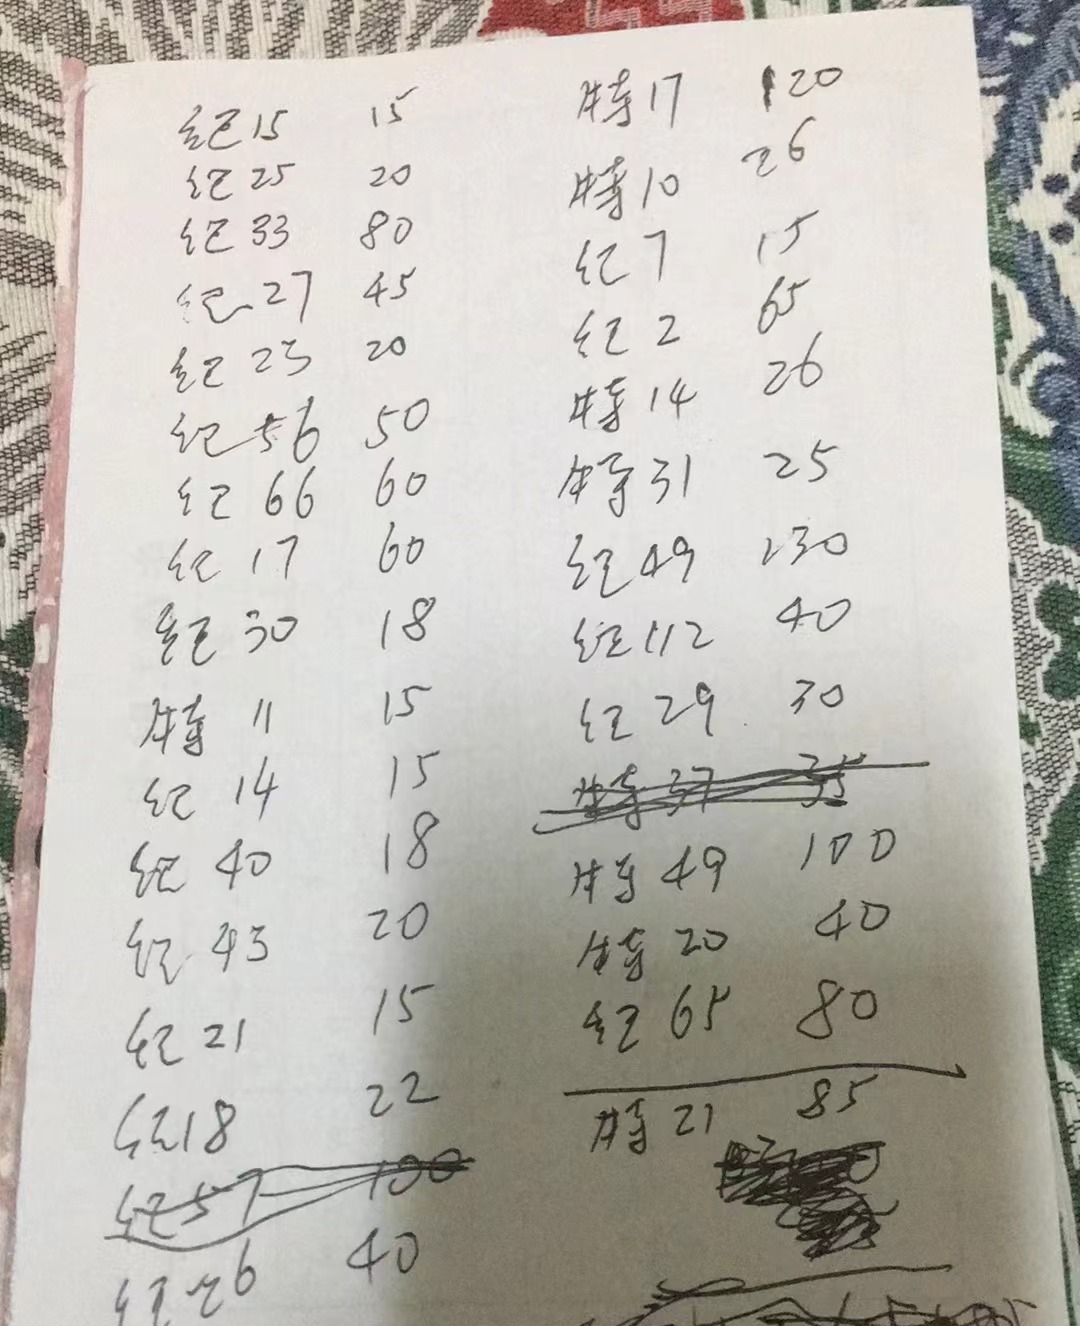 纪15 15
纪25 20
纪33 80
纪27 45
纪23 20
纪56 50
纪66 60
纪17 60
纪30 18
特11 15
纪14 15
纪40 18
纪43 20
纪21 15
纪18 22
纪57 100
纪26 40
特17 120
特10 26
纪7 15
纪2 65
特14 26
特31 25
纪49 230
纪112 40
纪29 30
特37 35
特49 100
特20 40
纪65 80
特21 85